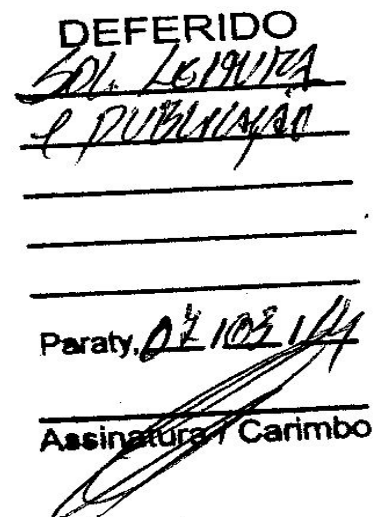 DEFERIDO
SOL. LEITURA
e PUBLICAÇÃO
Paraty, 07 / 03 / 14
Assinatura / Carimbo